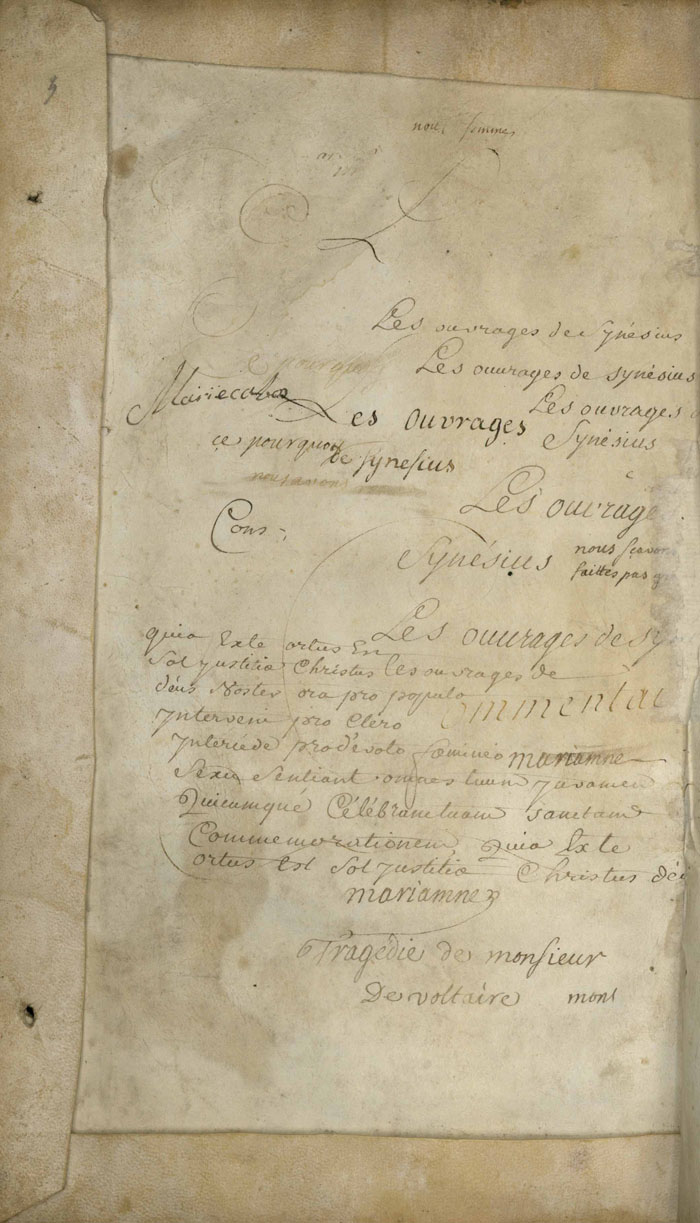 nous femmes
Les ouvrages de synésius
Les ouvrages de synésius
Les ouvrages
Les ouvrages Synésius
ce pourquoy de synesius
nous avons
Les ouvrage
Cons
Synésius nous scavons
faittes pas
Les ouvrages de sy
quia Exte ortus En
Sol justitiæ Christus les ouvrages de
déus Noster ora pro populo
ommentai
Interveni pro Cléro
Intercéde pro dévoto foemineo mariamne
Sexu sentiant omnes tuum juvamen
Quicumqué Célébrant tuam sanctam
Commemorationem quia Exte
ortus Est sol justitiæ Christus déu
mariamne
Tragédie de monsieur
De voltaire mons